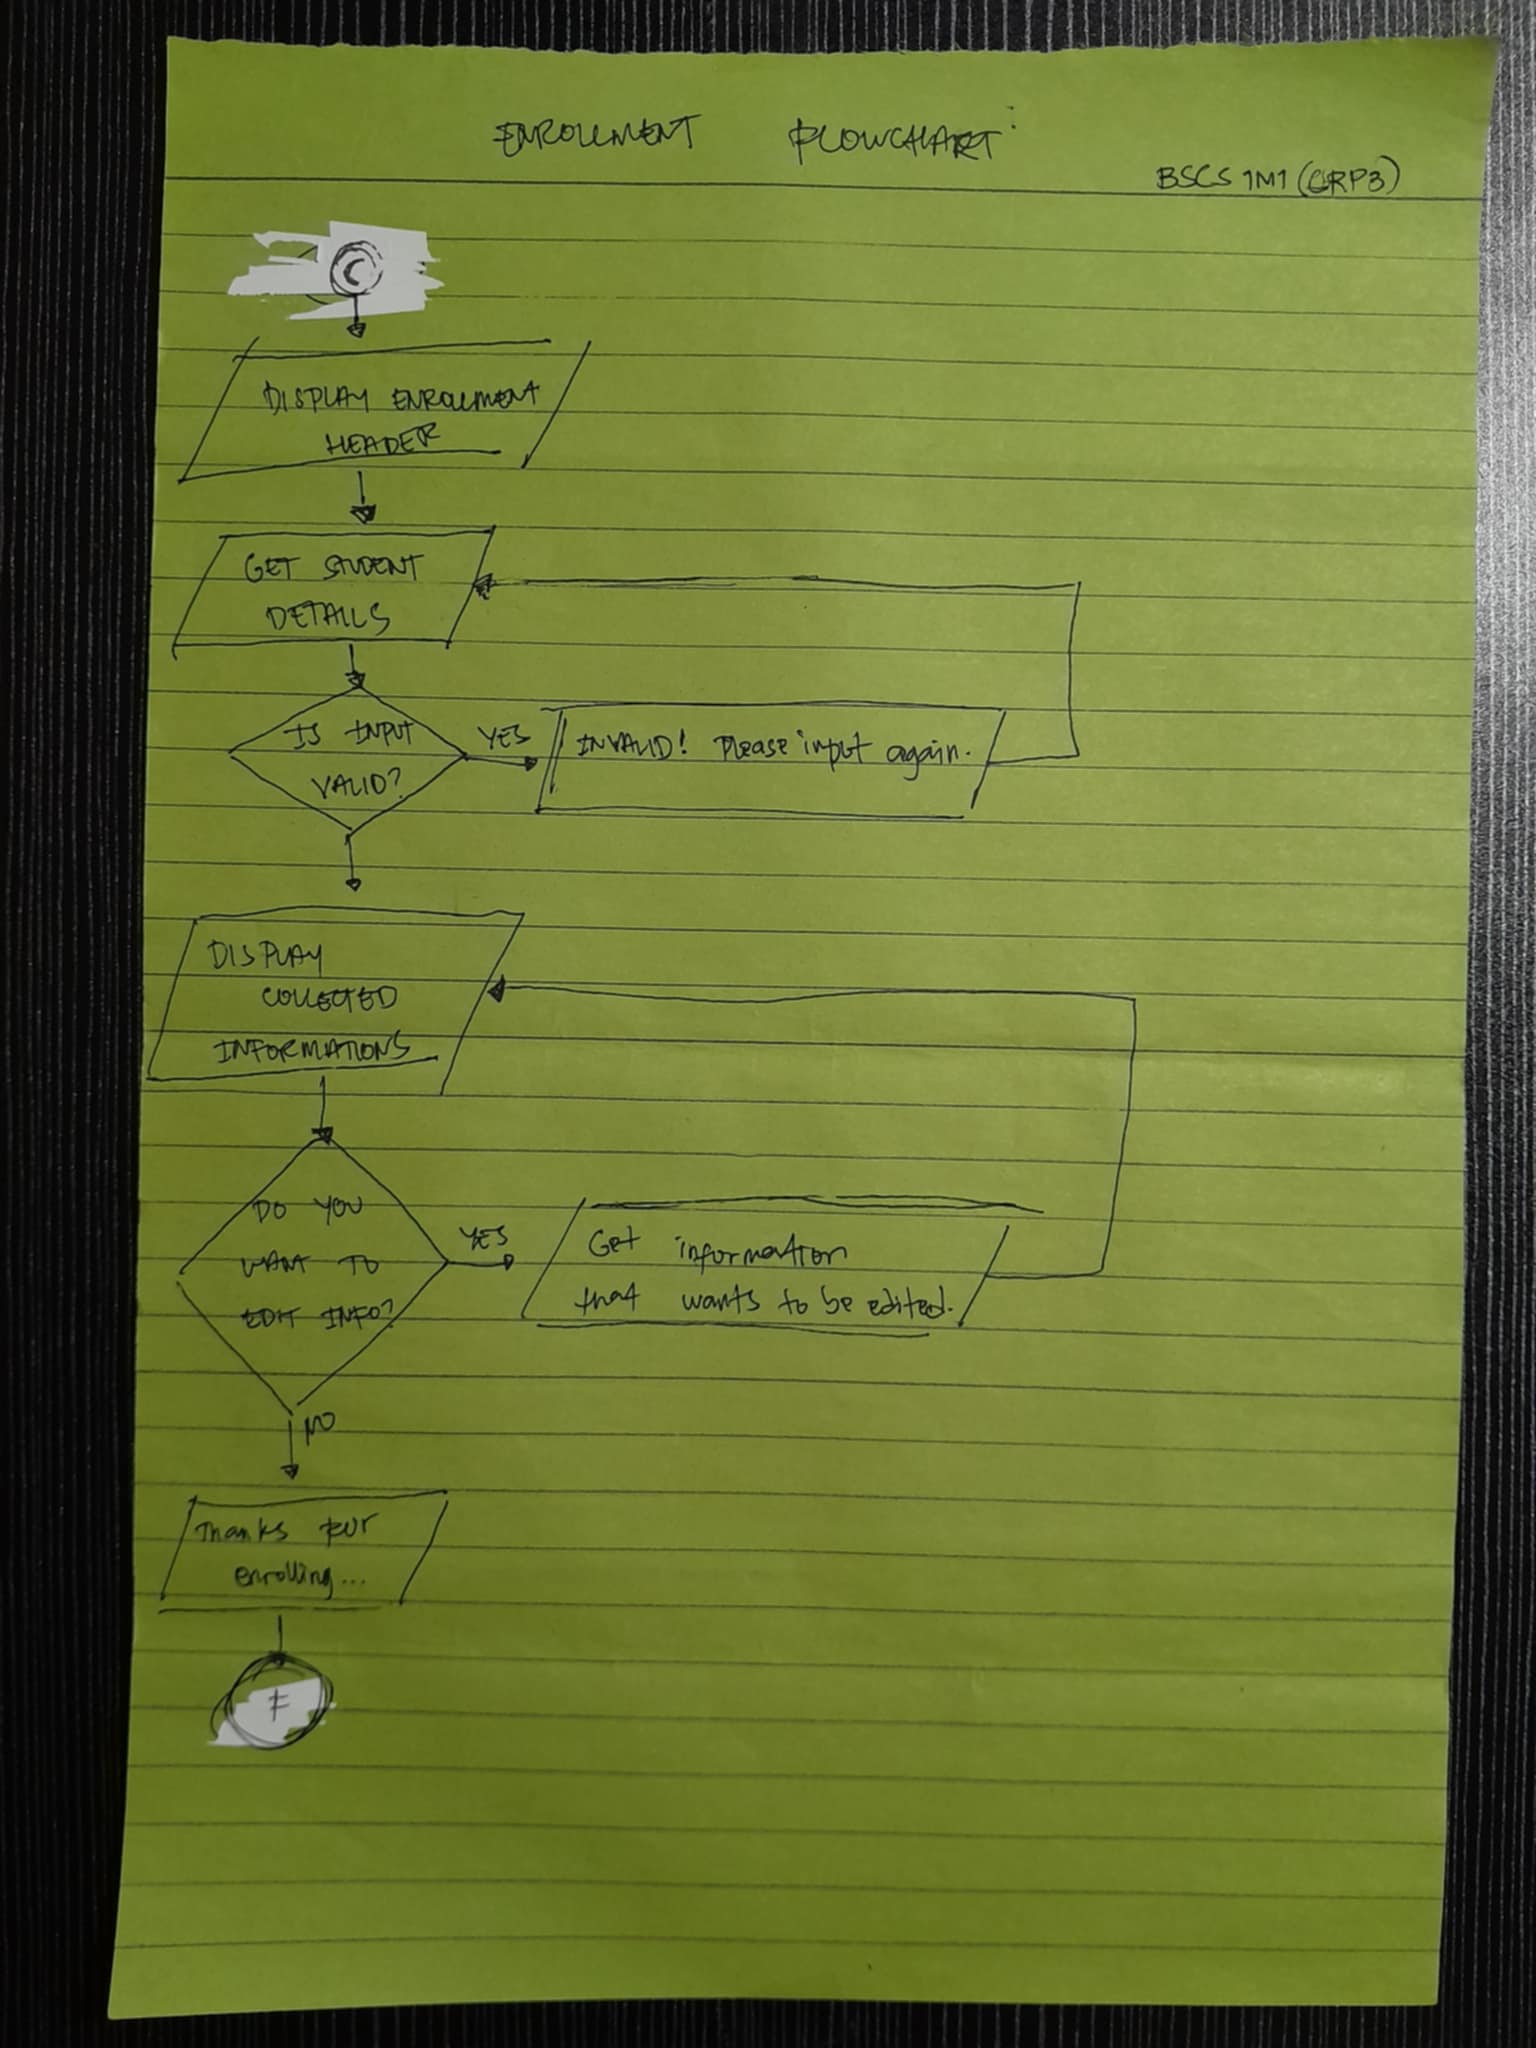 ENROLLMENT FLOWCHART:
BSCS 1M1 (GRP3)
C
DISPLAY ENROLLMENT
HEADER
GET STUDENT
DETAILS
IS INPUT
VALID?
YES
INVALID! Please input again.
DISPLAY
COLLECTED
INFORMATIONS
DO YOU
WANT TO
EDIT INFO?
YES
Get information
that wants to be edited.
NO
Thanks for
enrolling...
F